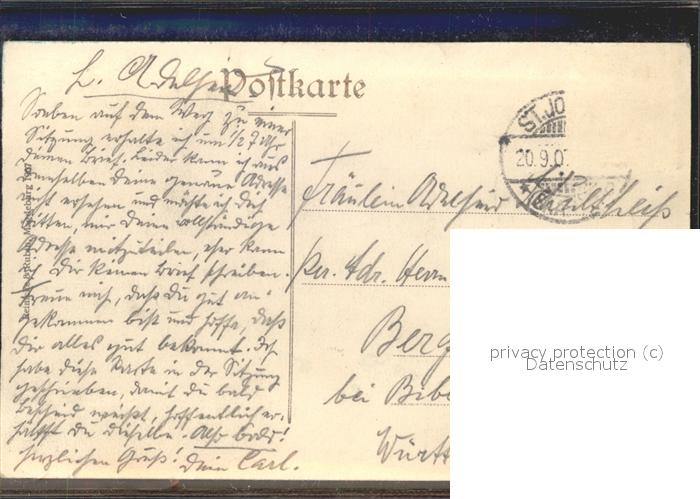 L. Adelheid
Postkarte
Soeben auf dem Weg zu einer
Sitzung erhalte ich um 1/2 7 Uhr
deinen Brief. Leider kann ich aus
demselben deine genaue Adresse
nicht ersehen und möchte ich dich
bitten, mir deine vollständige
Adresse mitzuteilen, eher kann
ich dir keinen Brief schreiben.
Freue mich, daß du gut an-
gekommen bist und hoffe, daß
dir alles gut bekommt. Ich
habe diese Karte in der Sitzung
geschrieben, damit du bald
Bescheid weißt, hoffentlich er-
hältst du dieselbe. Also bald!
herzlichen Gruß! Dein Carl.
Magdeburg 1907
ST.JO
20.9.0
Fräulein Adelheid
per. Adr. Herrn
Berg
bei Bibe
Württ
privacy protection (c)
Datenschutz